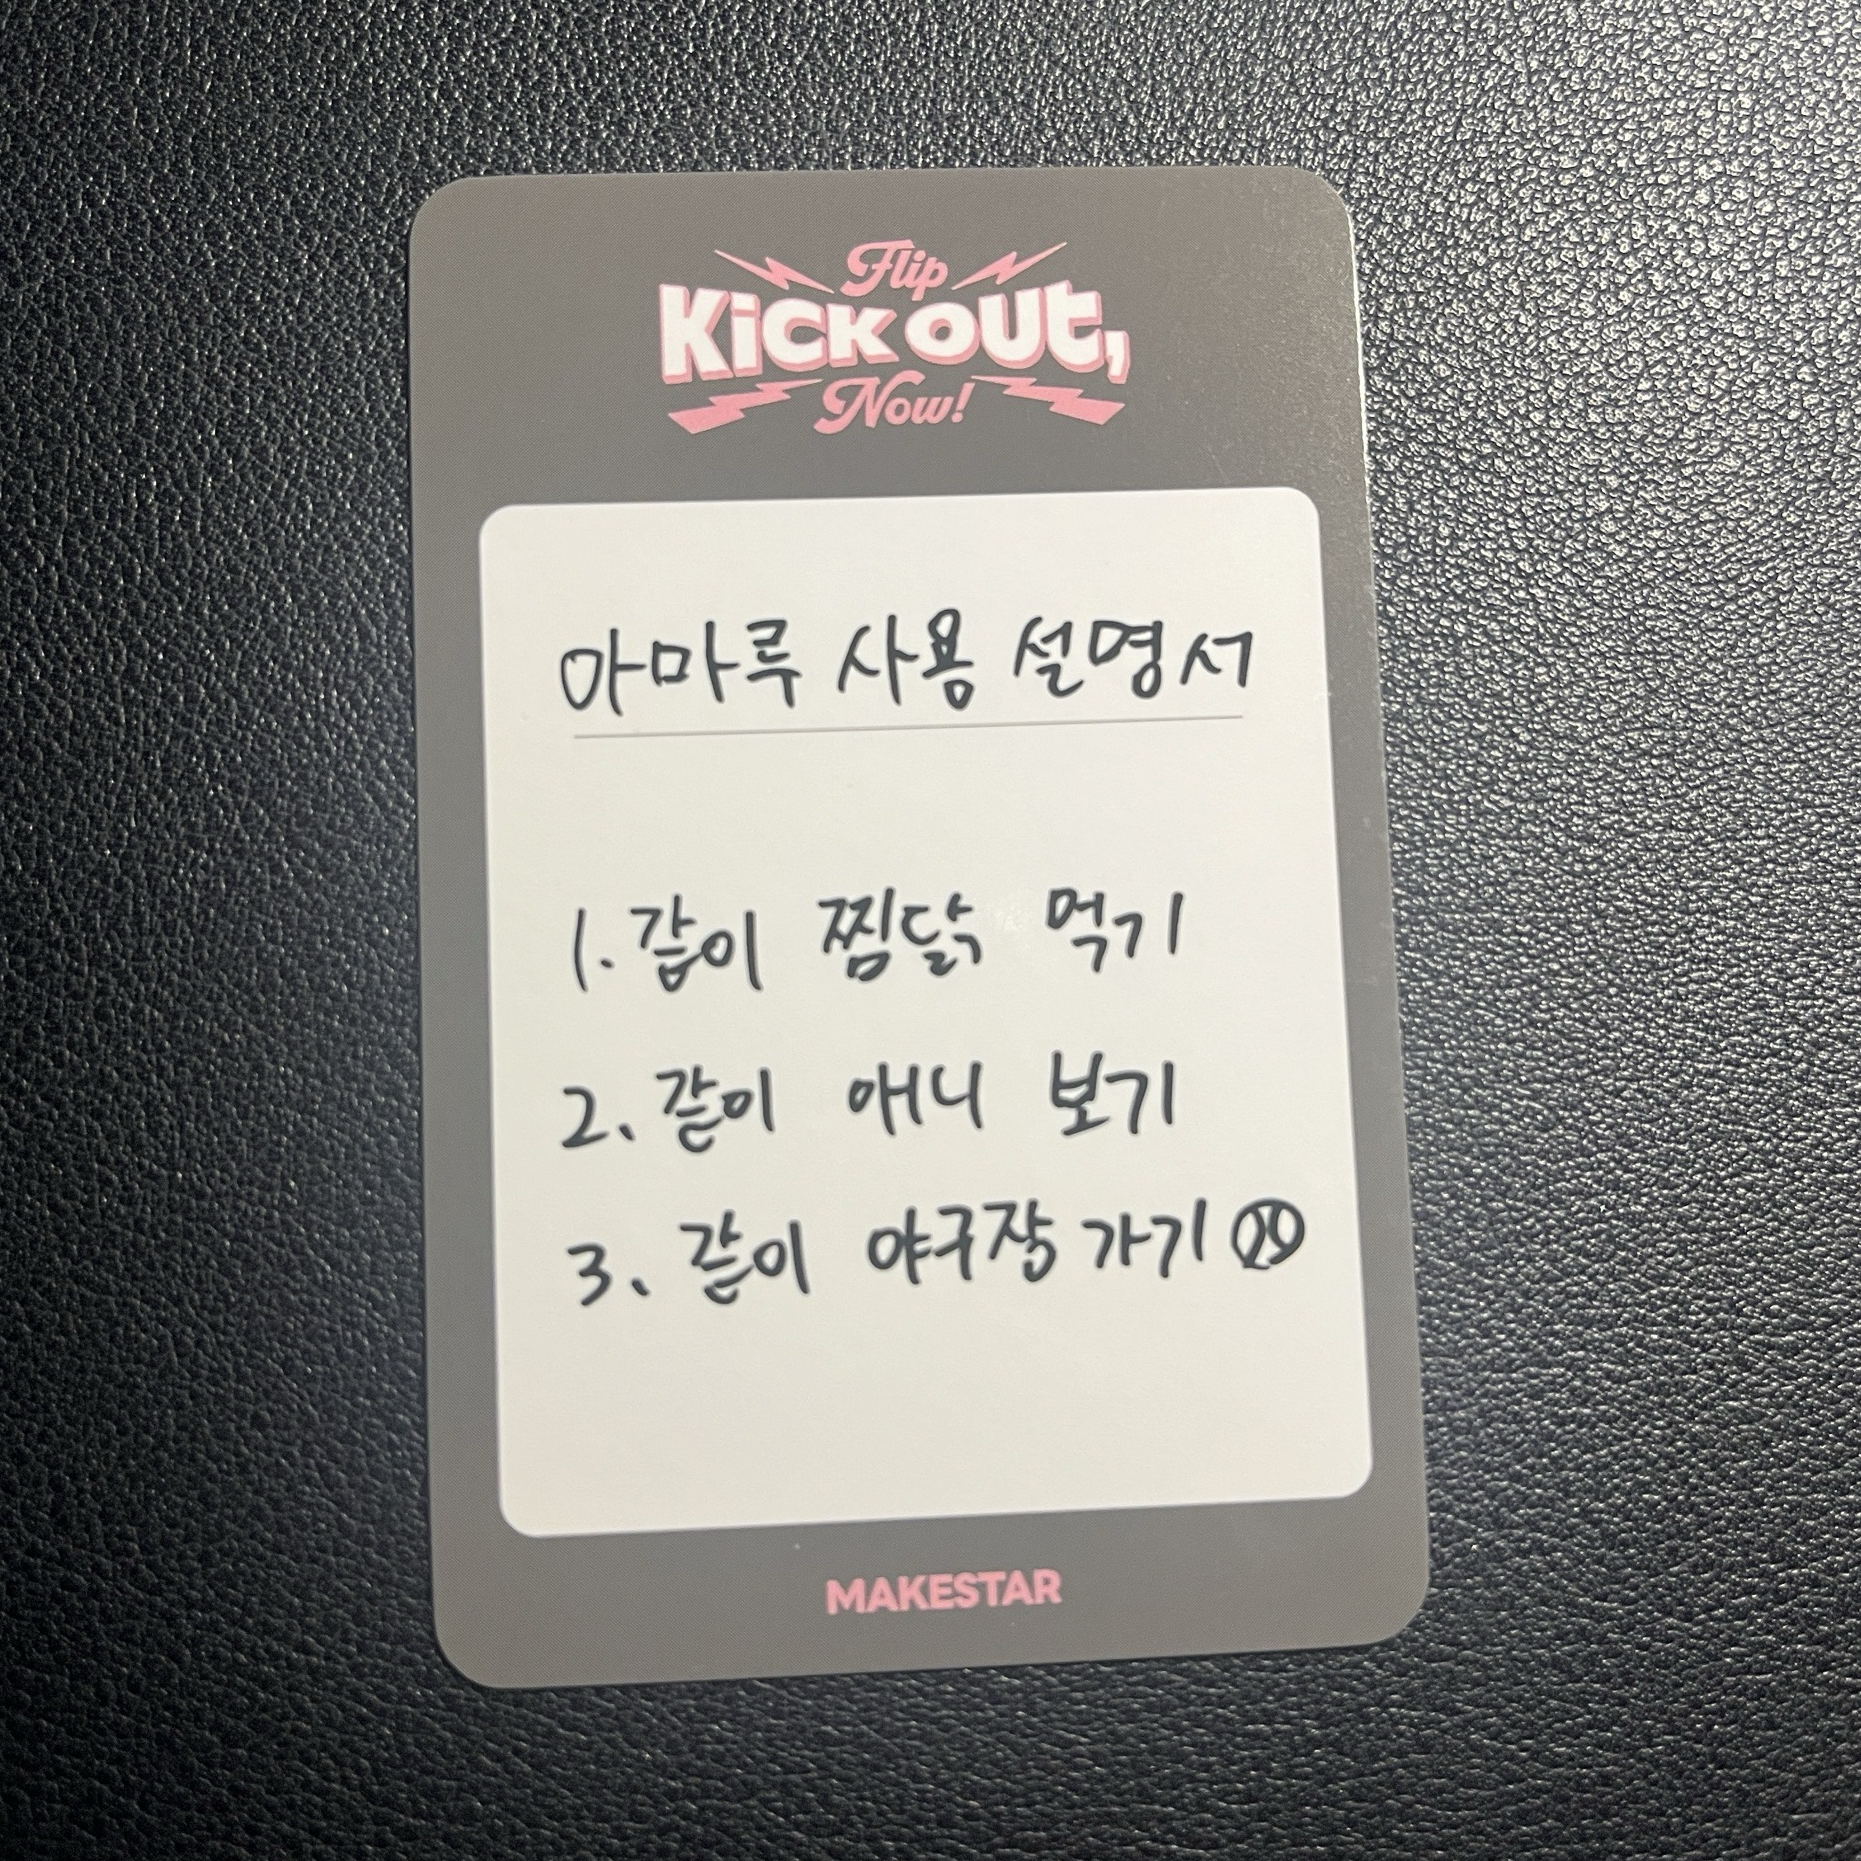 Flip
KiCK OUt,
Now!
아마루 사용 설명서
1. 같이 찜닭 먹기
2. 같이 애니 보기
3. 같이 야구장 가기
MAKESTAR